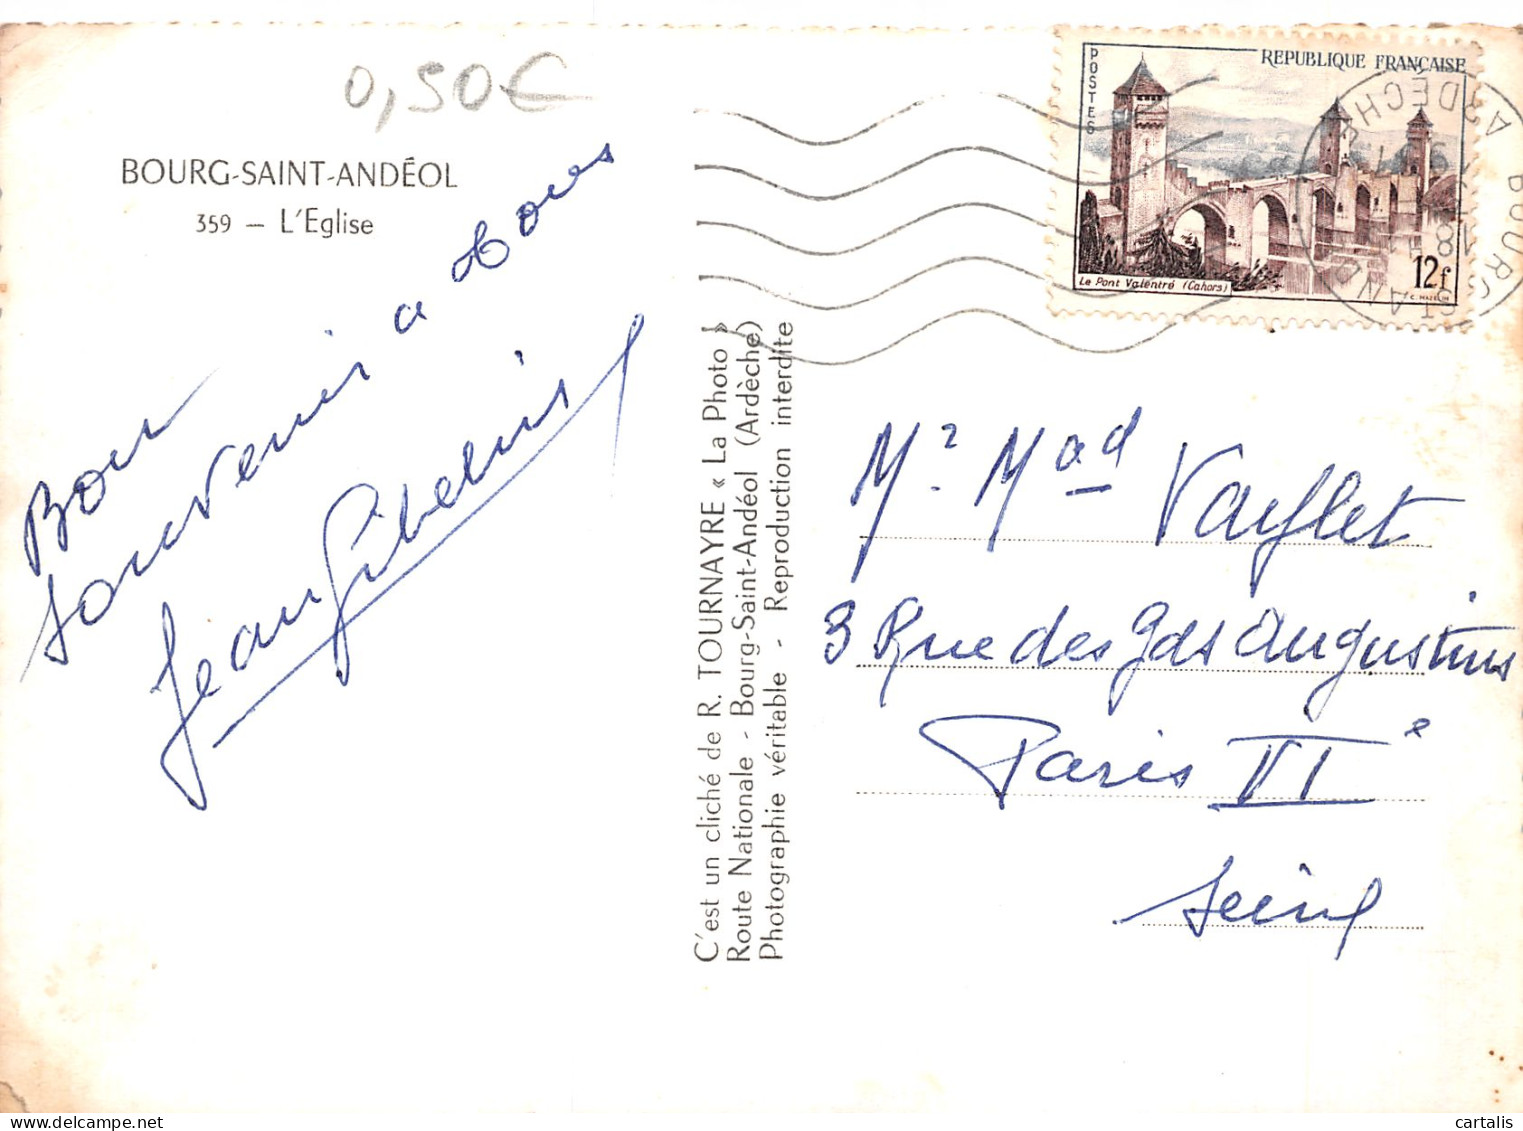 0,50€
BOURG-SAINT-ANDÉOL
359 — L'Eglise
Bon
souvenir a tous
Jean Gibelin
C'est un cliché de R. TOURNAYRE « La Photo »
Route Nationale - Bourg-Saint-Andéol (Ardèche)
Photographie véritable - Reproduction interdite
POSTES
REPUBLIQUE FRANÇAISE
12f
Le Pont Valentré (Cahors)
C. MAZELIN
BOURG ST AND
ARDECHE
Mr. Mad Vayflet
3 Rue des gds augustins
Paris VIe
Seine
cartalis